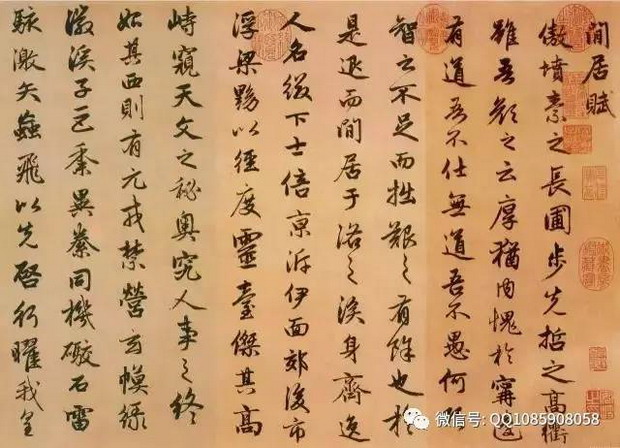 閒居賦
傲墳素之長圃步先哲之高衢
雖吾顏之云厚猶內愧於甯蘧
有道吾不仕無道吾不愚何
智之不足而拙艱之有餘也於
是退而閒居于洛之涘身齊逸
人名綴下士倍京泝伊面郊後市
浮梁黝以徑度靈臺傑其高
峙窺天文之秘奧究人事之終
始其西則有元戎禁營玄幙綠
徽溪子巨黍異絭同機礮石雷
駭激矢蝱飛以先啓行曜我皇
微信号: QQ1085908058